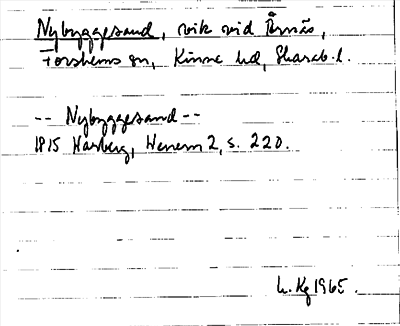 Nybyggesand, vik vid Årnäs,
Forshems sn, Kinne hd, Skarab.l.
-- Nybyggesand --
1815 Warberg, Wenern 2, s. 220.
L. Kg 1965.